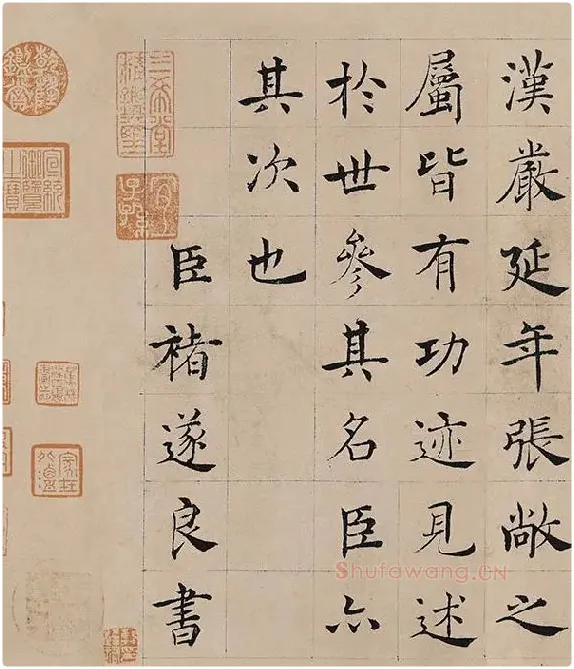 漢嚴延年張敞之
屬皆有功迹見述
於世參其名臣亦
其次也
臣褚遂良書
三希堂精鑑璽
宜子孫
乾隆鑑賞
宣統御覽之寶
Shufawang.CN